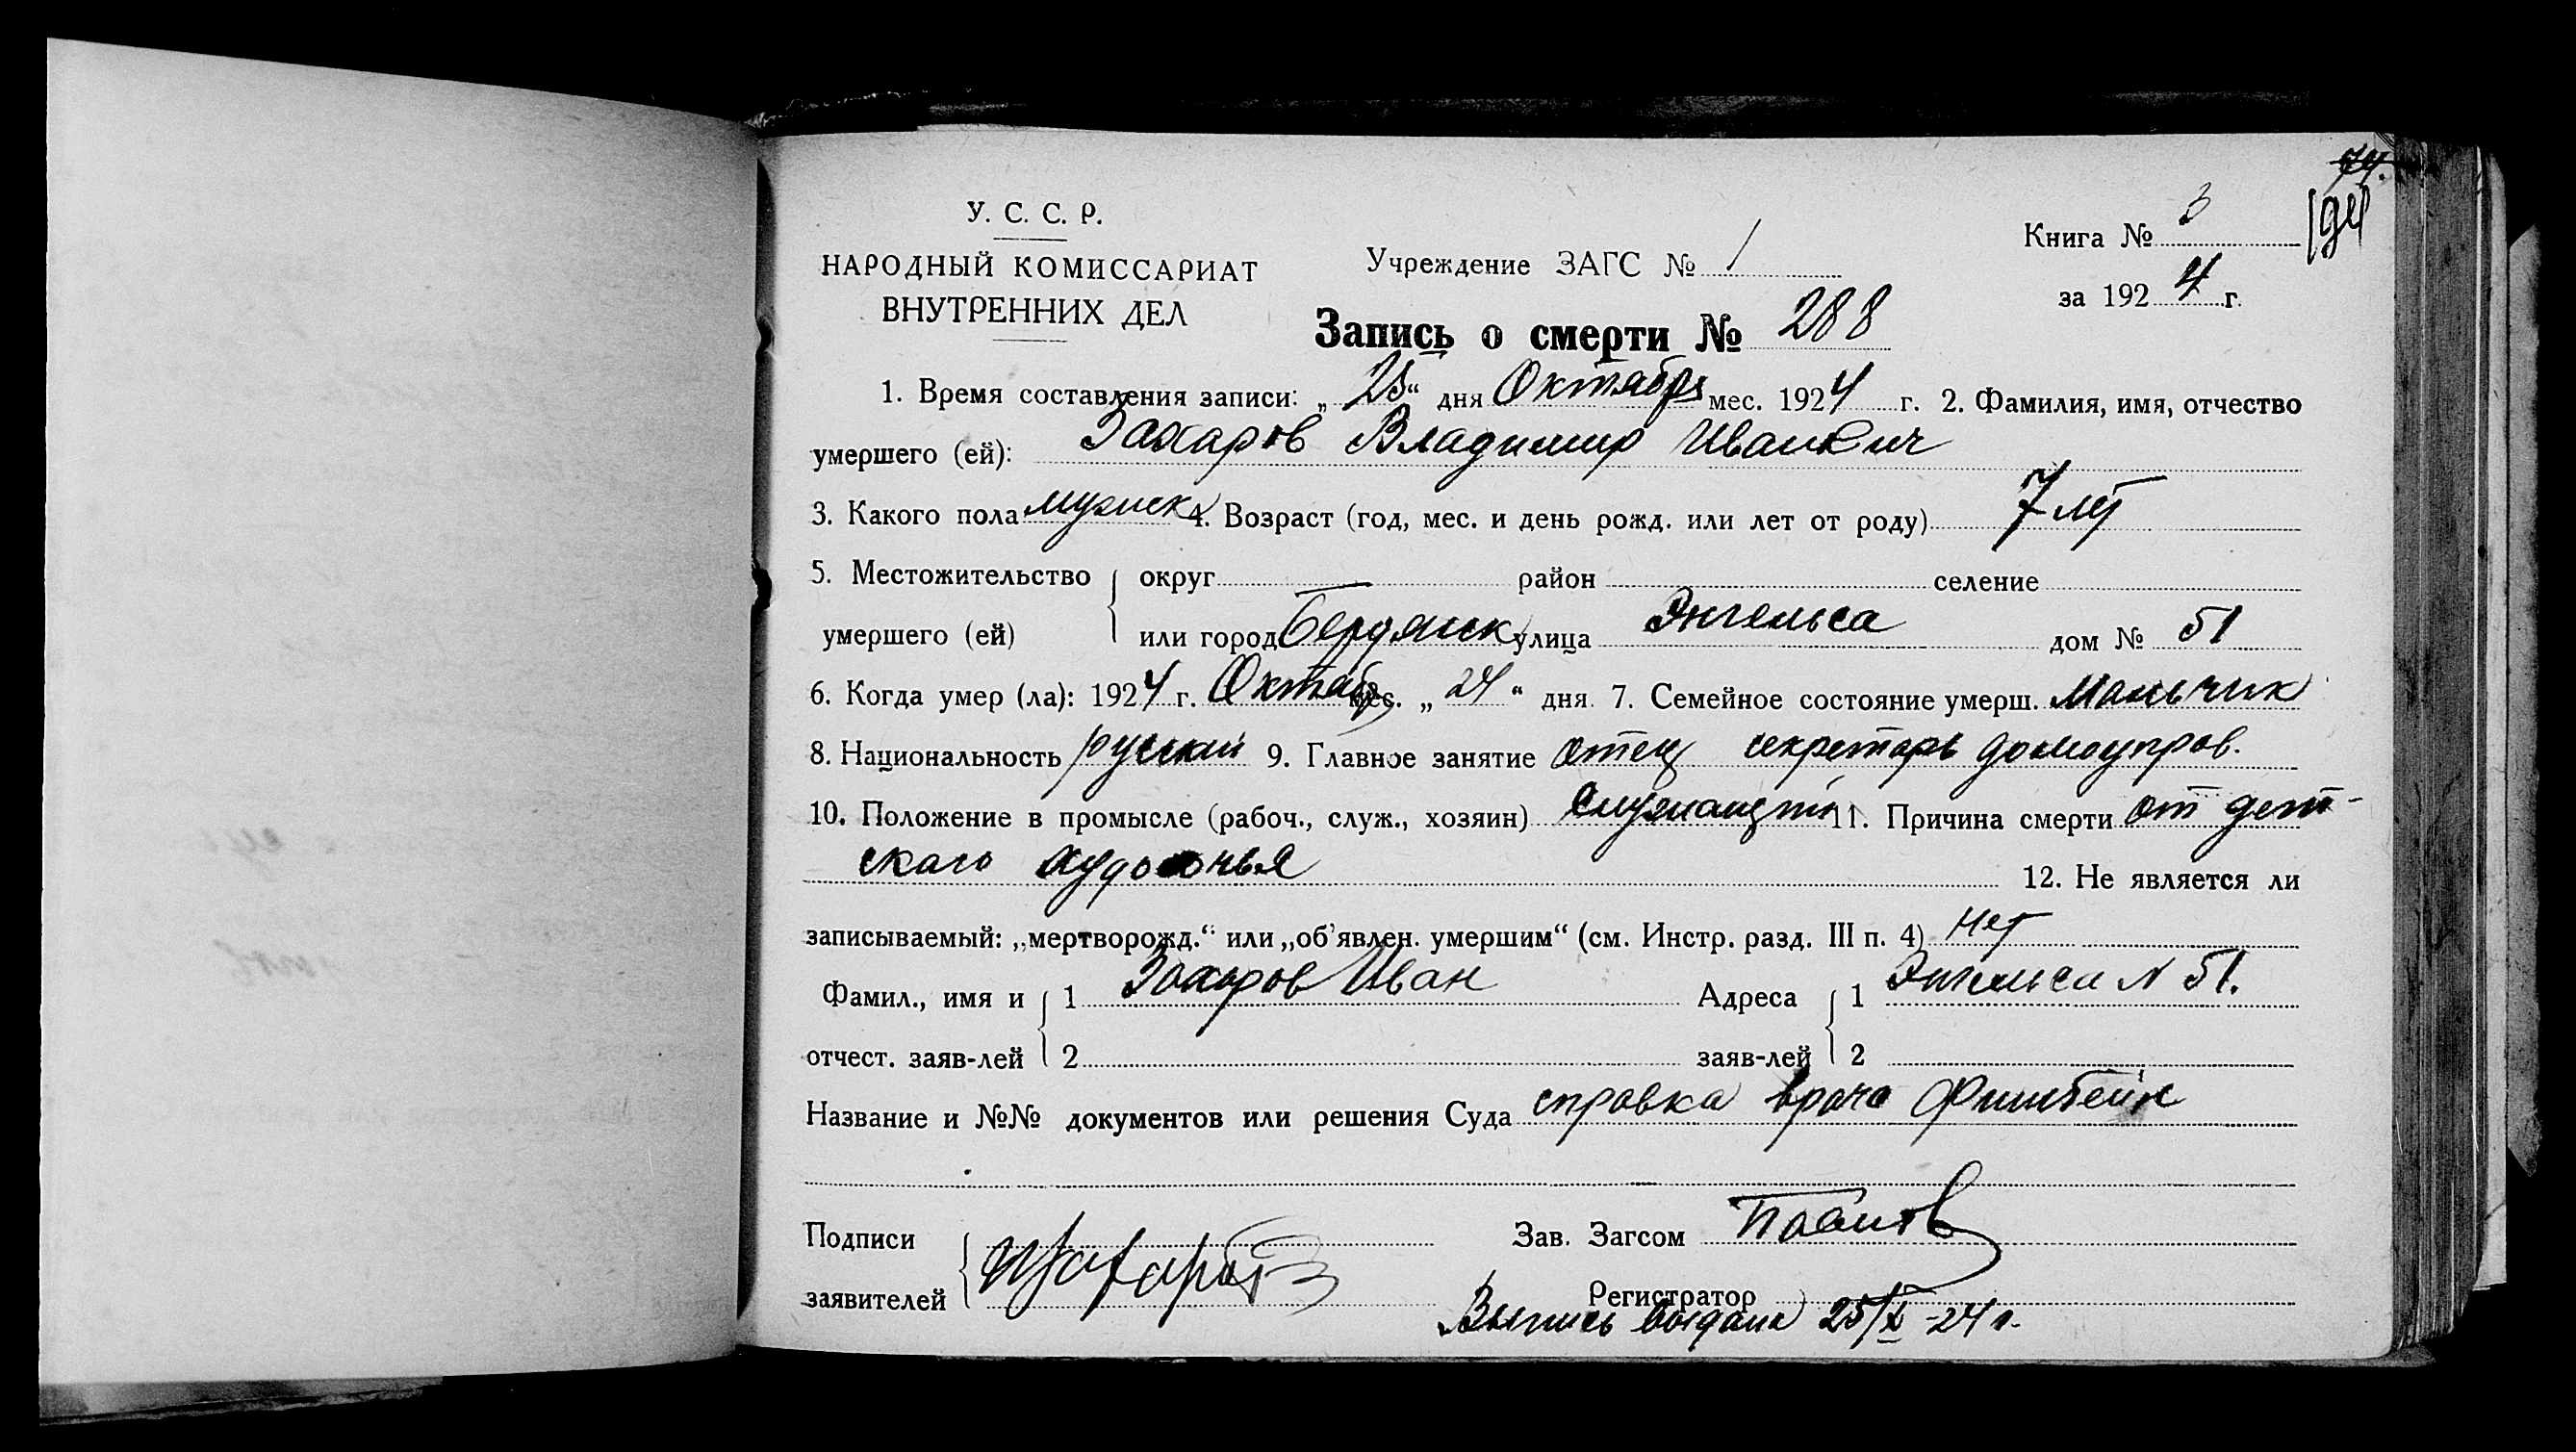 74.
194
У. С. С. Р.
НАРОДНЫЙ КОМИССАРИАТ
ВНУТРЕННИХ ДЕЛ
Учреждение ЗАГС № 1
Книга № 3
за 1924 г.
Запись о смерти № 288
1. Время составления записи: „25“ дня Октября мес. 1924 г. 2. Фамилия, имя, отчество
умершего (ей): Захаров Владимир Иванович
3. Какого пола мужск 4. Возраст (год, мес. и день рожд. или лет от роду) 7 лет
5. Местожительство { округ район селение
умершего (ей) или город Бердянск улица Энгельса дом № 51
6. Когда умер (ла): 1924 г. Октябр мес. „24“ дня. 7. Семейное состояние умерш. Мальчик
8. Национальность русский 9. Главное занятие отец секретарь домоуправ.
10. Положение в промысле (рабоч., служ., хозяин) Служащий 11. Причина смерти от дет-
скаго худосочья 12. Не является ли
записываемый: „мертворожд.“ или „об’явлен. умершим“ (см. Инстр. разд. III п. 4) Нет
Фамил., имя и { 1 Захаров Иван Адреса { 1 Энгельса N 51.
отчест. заяв-лей 2 заяв-лей 2
Название и №№ документов или решения Суда справка врача
Подписи { Зав. Загсом
заявителей Регистратор
Выпись выдана 25/X-24 г.